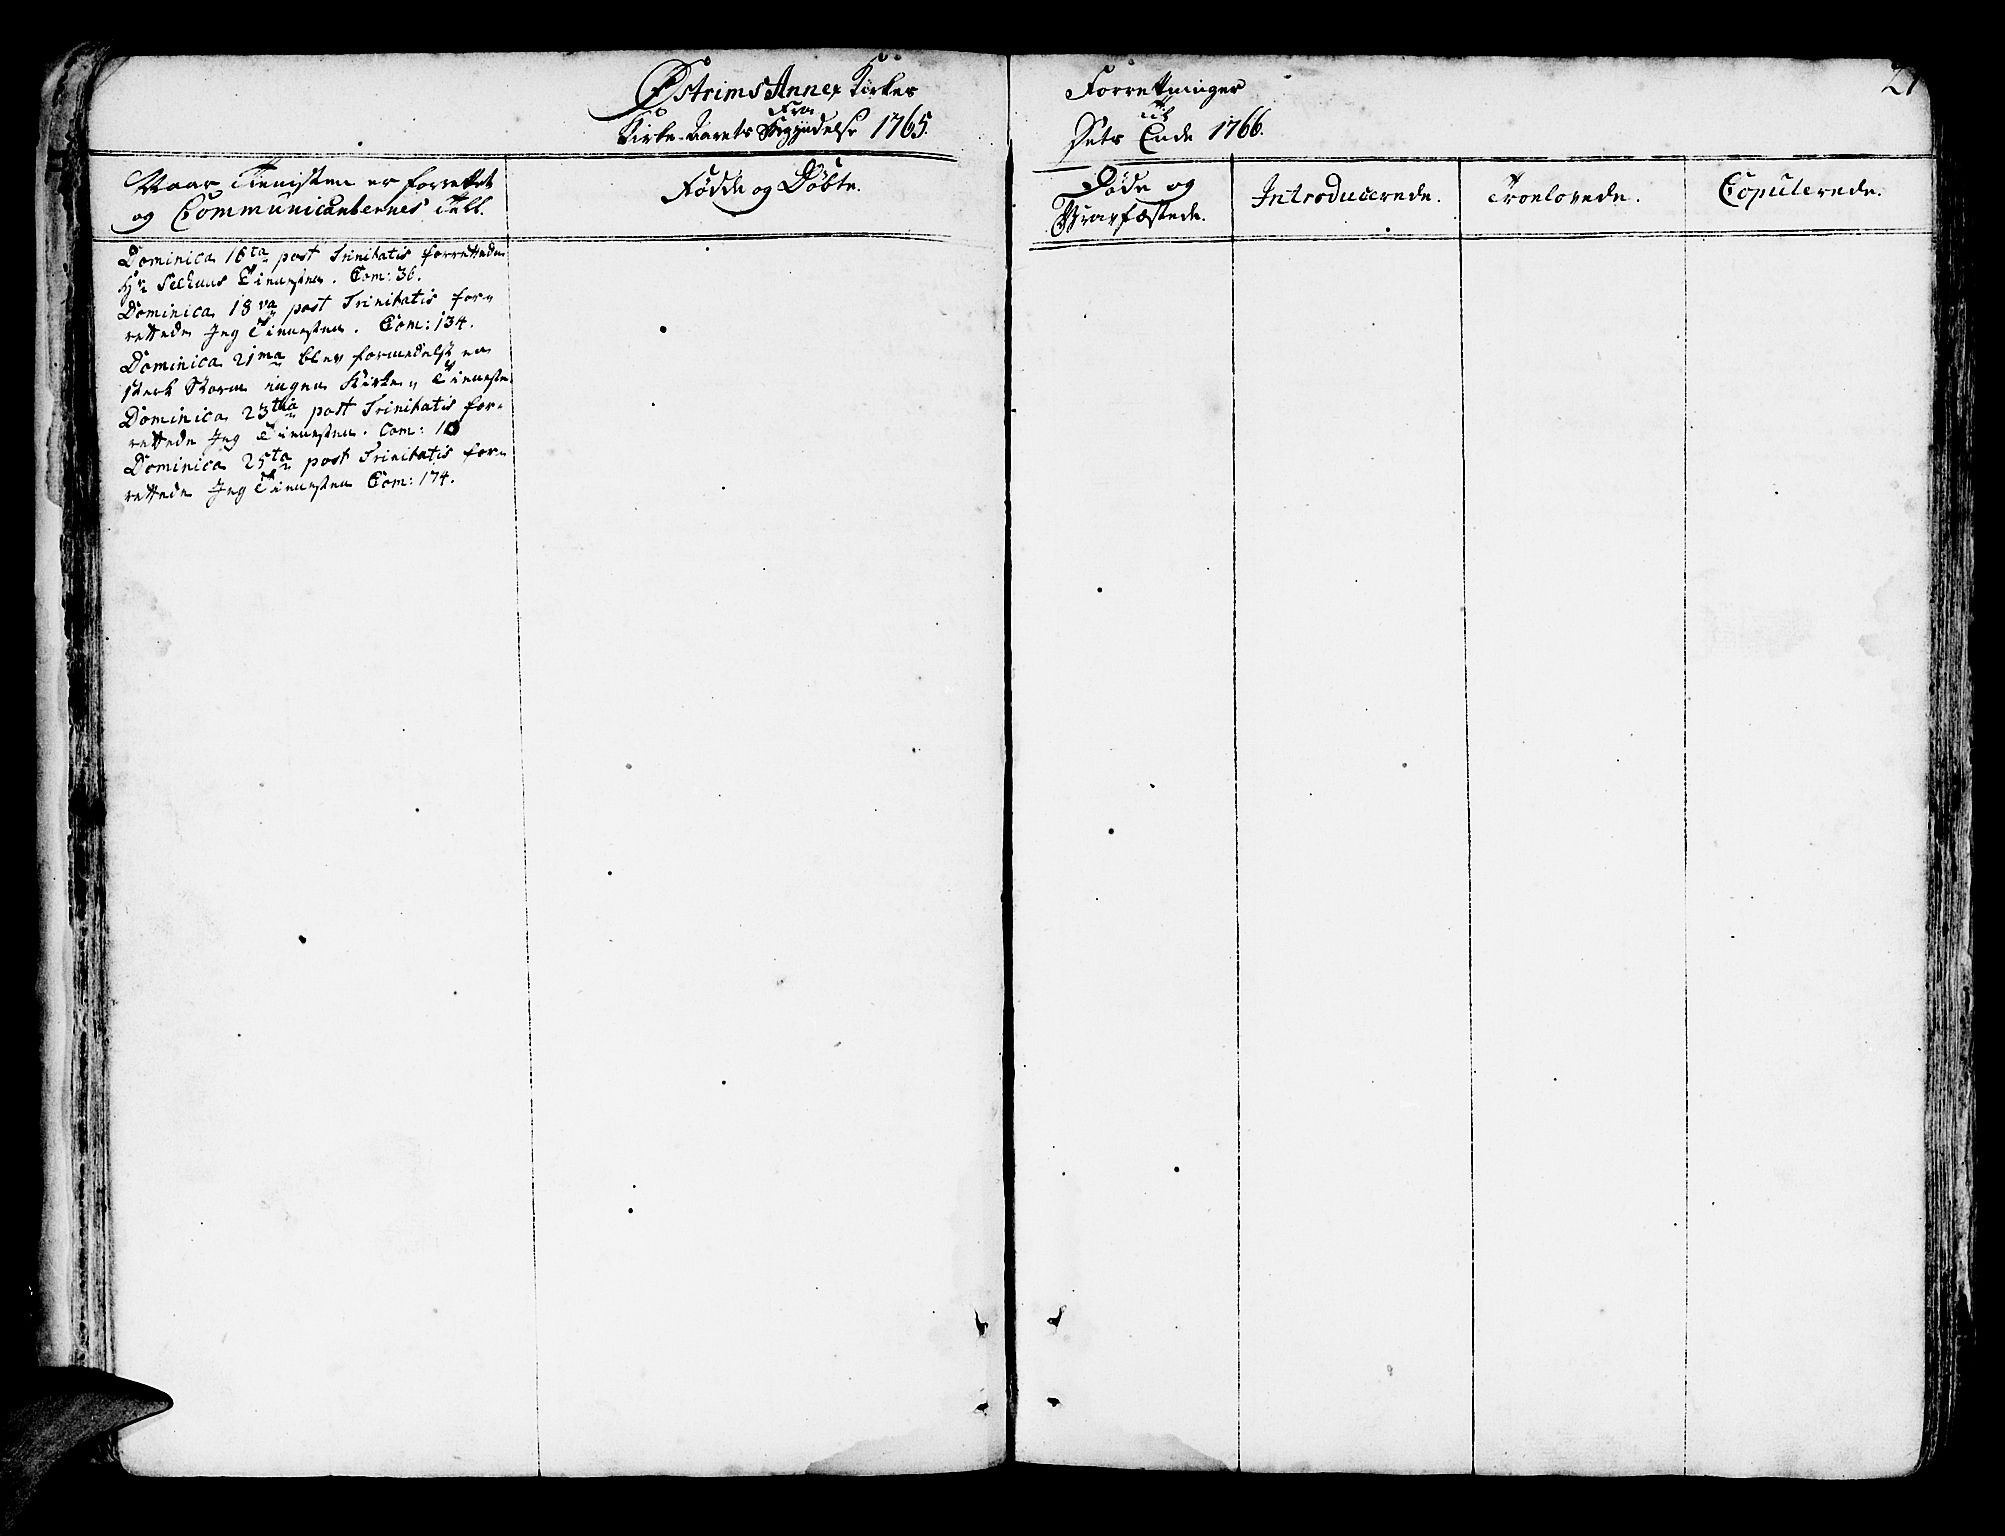 Østrims Annex Kirkes
Fra
Kirke-Aarets Begyndelse 1765.
Forretninger
til
Dets Ende 1766.
Naar Tienisten er forrettet
og Communicanternes Tall.
Fødde og Døbte.
Døde og
Gravfæstede.
Introducerede.
Troelovede.
Copulerede.
Dominica 16ta post Trinitatis forrettede
Hr Tienesten. Com: 36.
Dominica 18va post Trinitatis for-
rettede Jeg Tienesten. Com: 134.
Dominica 21ma blev formedelst en
sterk Storm ingen Kirke-Tieneste.
Dominica 23tia post Trinitatis for-
rettede Jeg Tienesten. Com:
Dominica 25ta post Trinitatis for-
rettede Jeg Tienesten Com: 174.